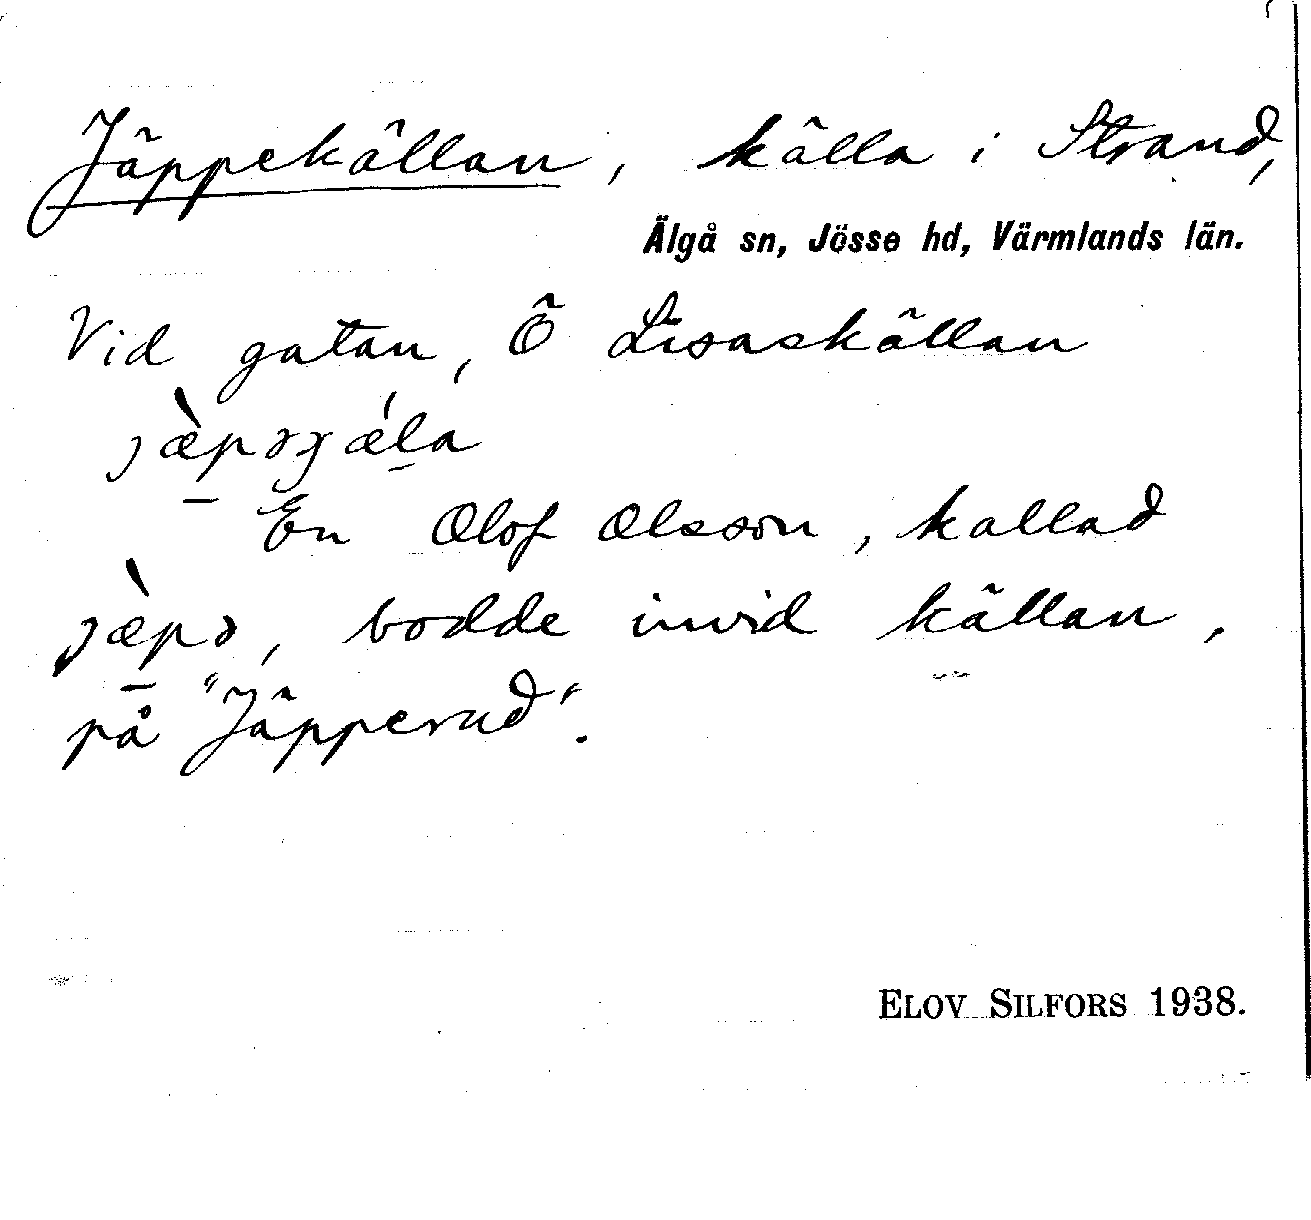 Jäppekällan, källa i Strand,
Älgå sn, Jösse hd, Värmlands län.
Vid gatan, Ö Lisaskällan
En Olof Olsson, kallad
bodde invid källan,
på "Jäpperud".
ELOV SILFORS 1938.